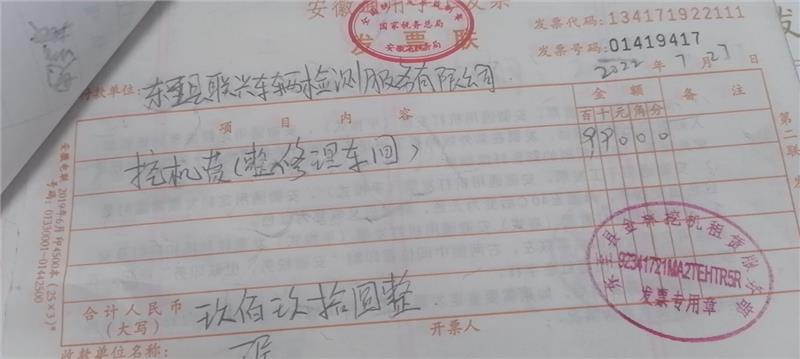 发票联
国家税务总局
安徽省税务局
发票代码:134171922111
发票号码:01419417
2022年7月27日
付款单位:东至县联兴车辆检测服务有限公司
项目内容
金额
备注
百十元角分
挖机费(整修理车间)
99000
第二联
安徽电联 2019年6月印4500本(25×3)
号码:01330001-01442500
92341721MA2TEHTR5R
发票专用章
合计人民币
(大写)
玖佰玖拾圆整
开票人:
收款单位名称: